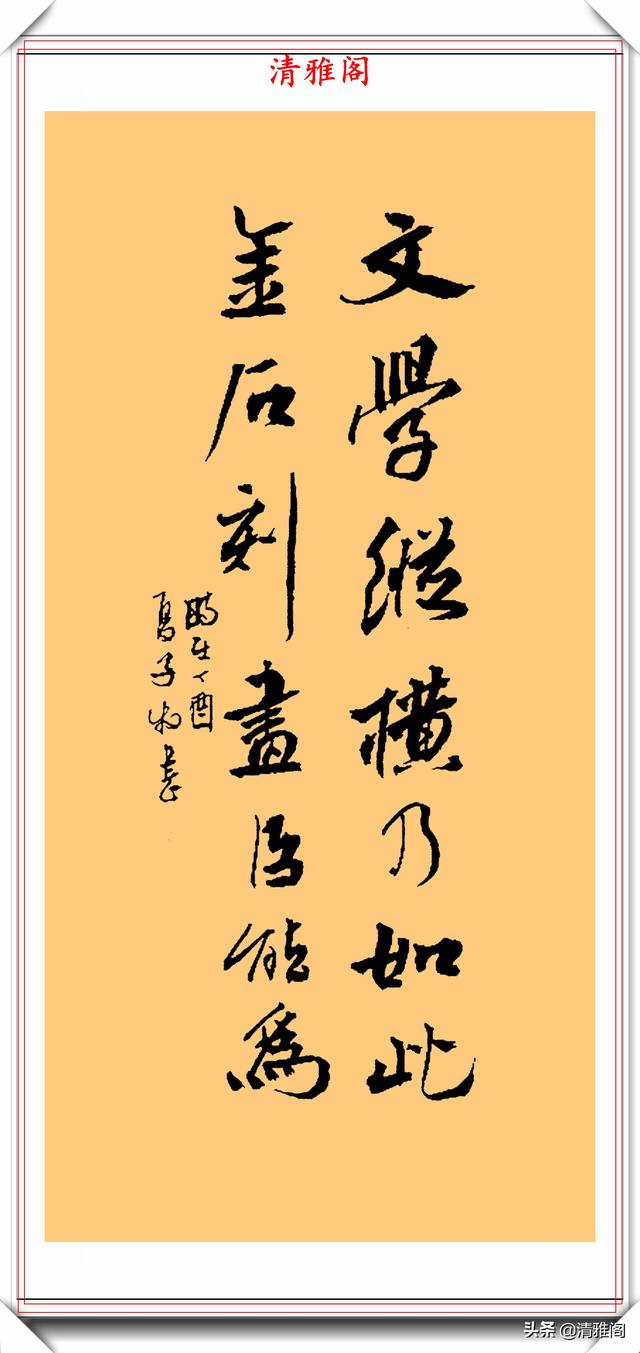 清雅阁
文學縱橫乃如此
金石刻畫臣能為
時在丁酉
子 書
头条 @清雅阁